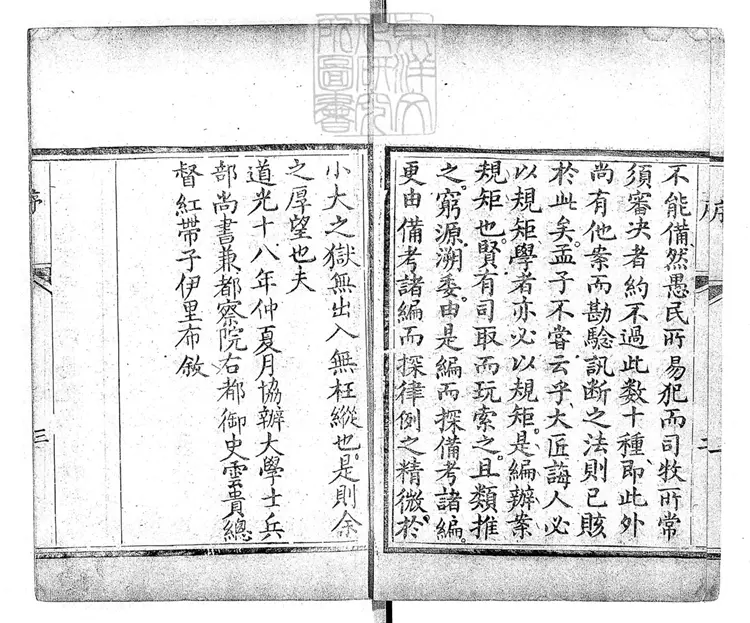 不能備然愚民所易犯而司牧所常
須審决者約不過此数十種即此外
尚有他案而勘驗訊断之法則已賅
於此矣孟子不嘗云乎大匠誨人必
以規矩學者亦必以規矩是編辦案
規矩也賢有司取而玩索之且類推
之窮源溯委由是編而探備考諸編
更由備考諸編而探律例之精微於
序
二
小大之獄無出入無枉縱也是則余
之厚望也夫
道光十八年仲夏月協辦大學士兵
部尚書兼都察院右都御史雲貴總
督紅帶子伊里布敘
序
三
東洋文
化研究
所圖書